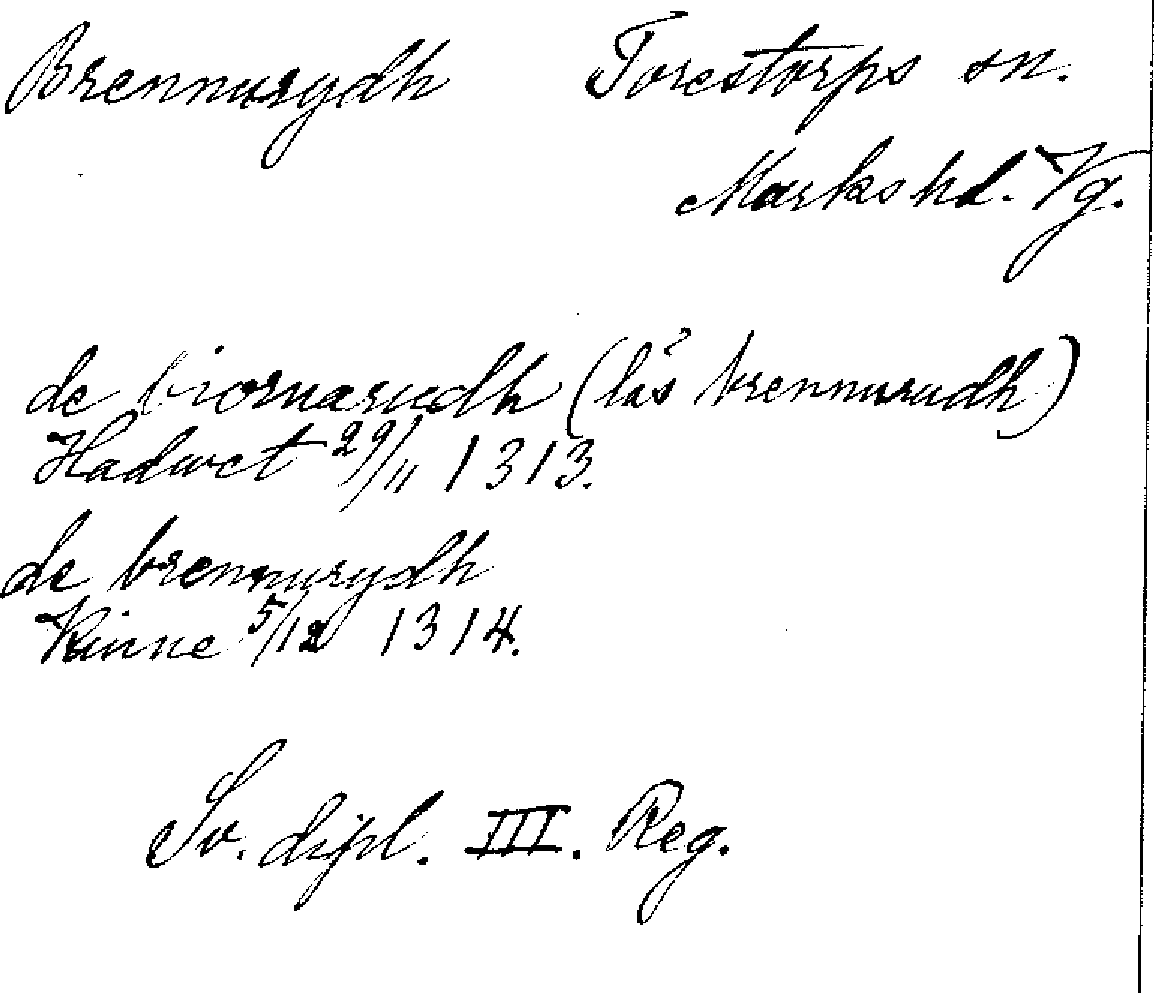 Brennurydh Torestorps sn.
Marks hd. Vg.
de biornarudh (läs brennurudh)
Hadwet 29/11 1313.
de brennurydh
Kinne 5/12 1314.
Sv. dipl. III. Reg.